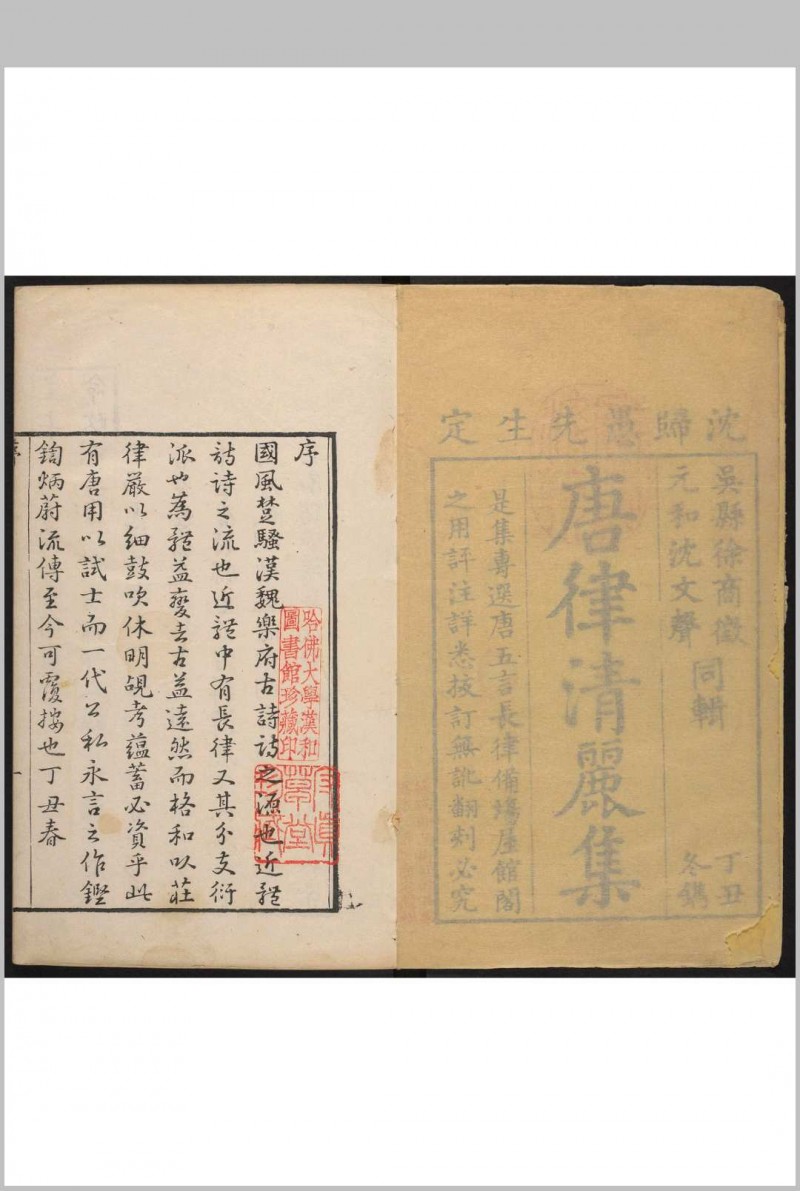 沈歸愚先生定
吳縣徐商徵
元和沈文聲
同輯
丁丑
冬鐫
唐律清麗集
是集專選唐五言長律備場屋館閣
之用評注詳悉挍訂無訛翻刻必究
序
國風楚騷漢魏樂府古詩詩之源也近體
詩詩之流也近體中有長律又其分支衍
派也為體益變去古益遠然而格和以莊
律嚴以細鼓吹休明覘考蘊蓄必資乎此
有唐用以試士而一代公私永言之作鏗
鍧炳蔚流傳至今可覆按也丁丑春
哈佛大學漢和
圖書館珍藏印
序
一